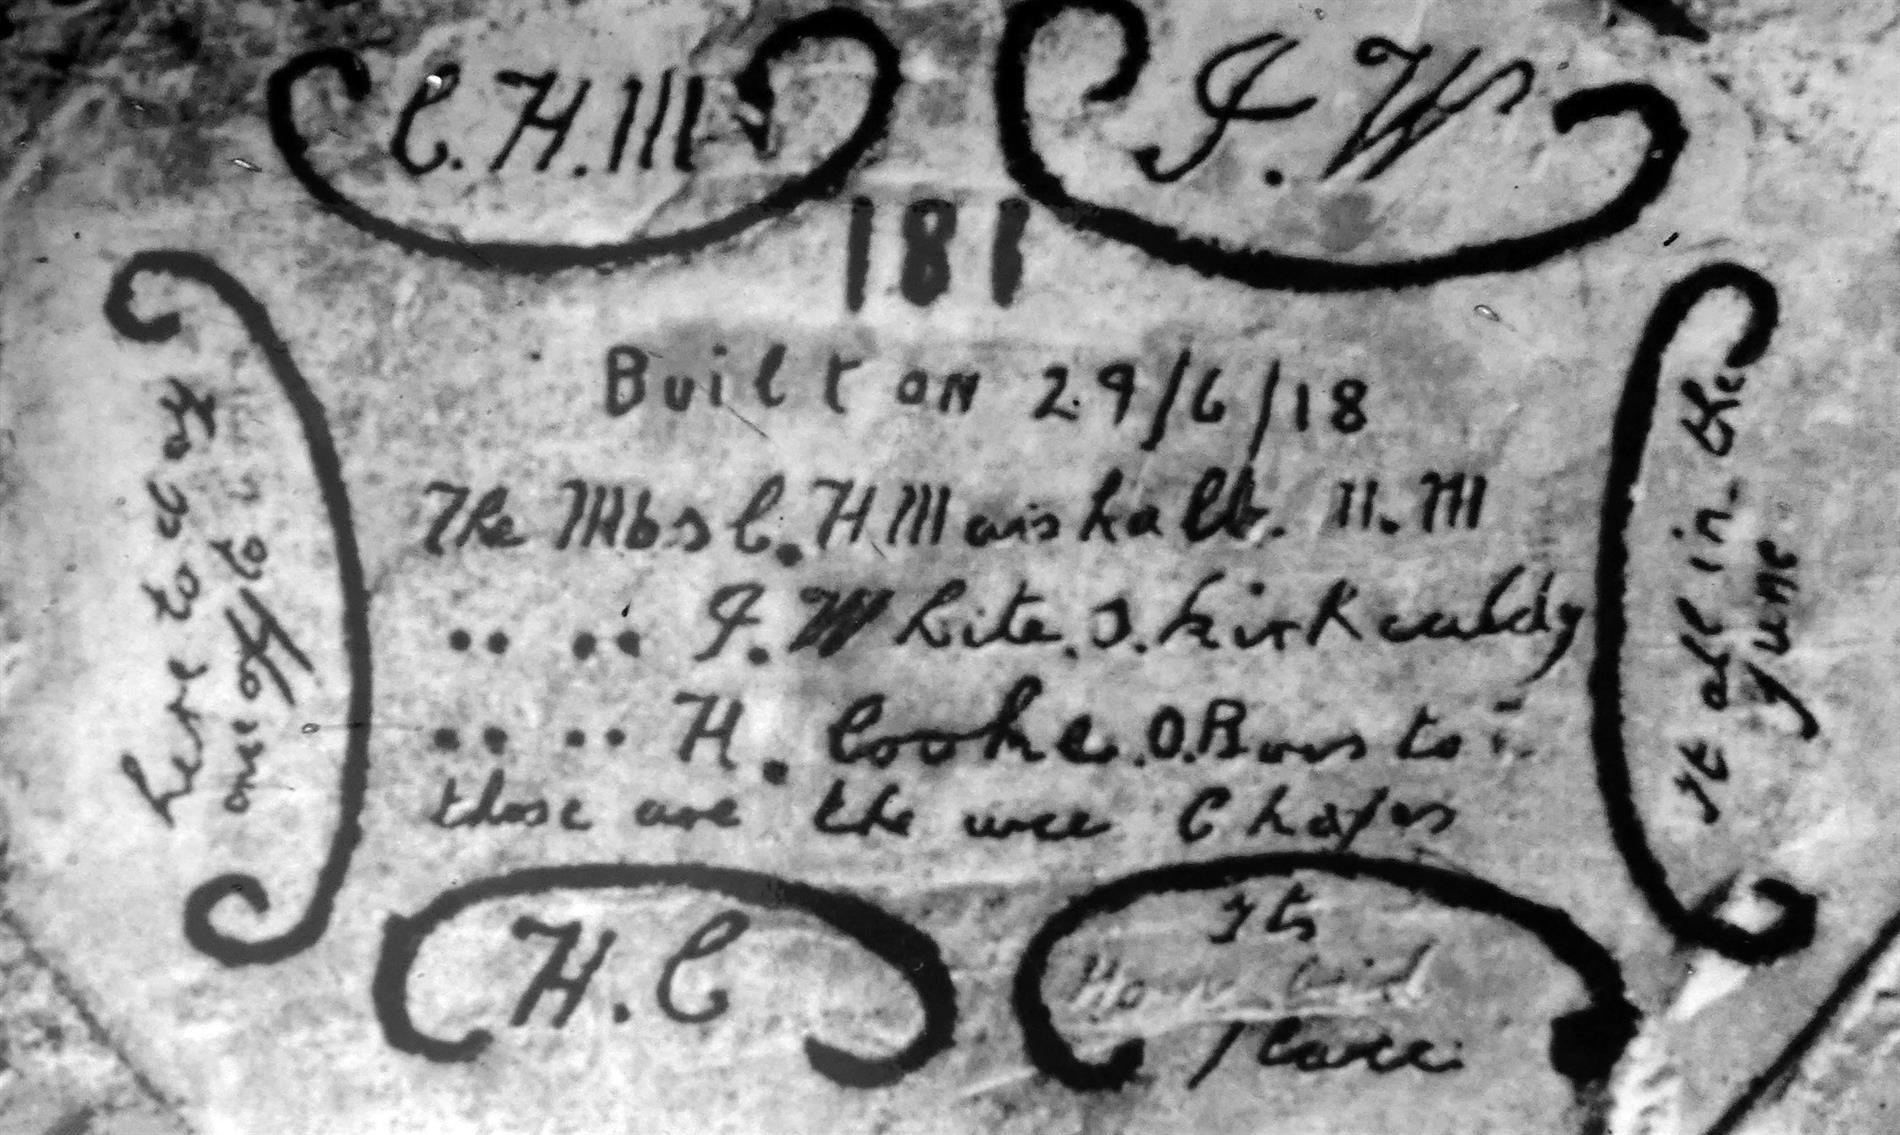 C.H.M
J.W
181
Built on 29/6/18
The M^bs C.H Marshall. H.M
.. .. J.White.S.Kirkcaldy
.. .. H. Cooke.O.Barsto
those are the wee Chaps
here to day
one off to
It all in the
June
H.C
Its
place